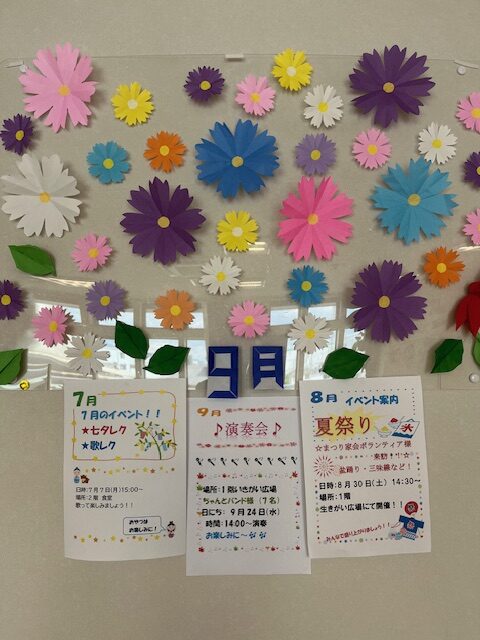 9月
7月
7月のイベント！！
★七夕レク
★歌レク
日時：7月7日（月）15:00～
場所：2階 食堂
歌って楽しみましょう！！
おやつは
お楽しみに！
9月
♪演奏会♪
場所：1階いきがい広場
ちゃんとバンド様（7名）
日にち：9月24日（水）
時間：14:00～演奏
お楽しみに～
8月 イベント案内
夏祭り
☆まつり家会ボランティア様
来訪！
盆踊り・三味線など！
日時：8月30日（土）14:30～
場所：1階
生きがい広場にて開催！！
みんなで盛り上がりましょう！！